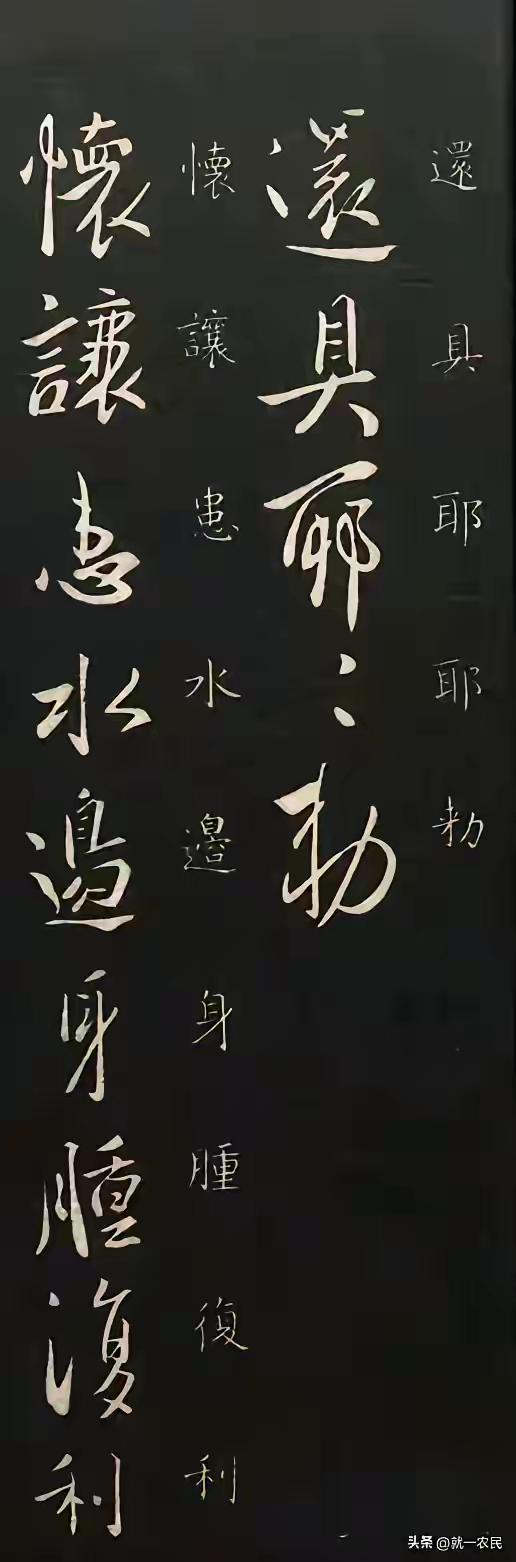 還具耶耶勅
還具耶〻勅
懷讓患水邊身腫復利
懷讓患水邊身腫復利
头条 @就一农民